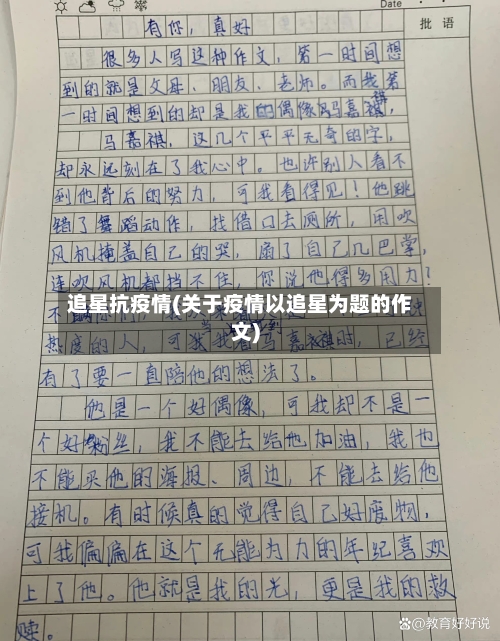 Date
批 语
有你，真好
很多人写这种作文，第一时间想
到的就是父母、朋友、老师。而我第
一时间想到的却是我的偶像马嘉祺，
马嘉祺，这几个平平无奇的字，
却永远刻在了我心中。也许别人看不
到他背后的努力，可我看得见！他跳
错了舞蹈动作，找借口去厕所，用吹
风机掩盖自己的哭，扇了自己几巴掌，
连吹风机都挡不住，你说他得多用力？
追星抗疫情(关于疫情以追星为题的作
文)
热度的人，可我我看马嘉祺时，已经
有了要一直陪他的想法了。
他是一个好偶像，可我却不是一
个好粉丝，我不能去给他加油，我也
不能买他的海报、周边，不能去给他
接机。有时候真的觉得自己好废物，
可我偏偏在这个无能为力的年纪喜欢
上了他。他就是我的光，更是我的救
赎。
@教育好好说